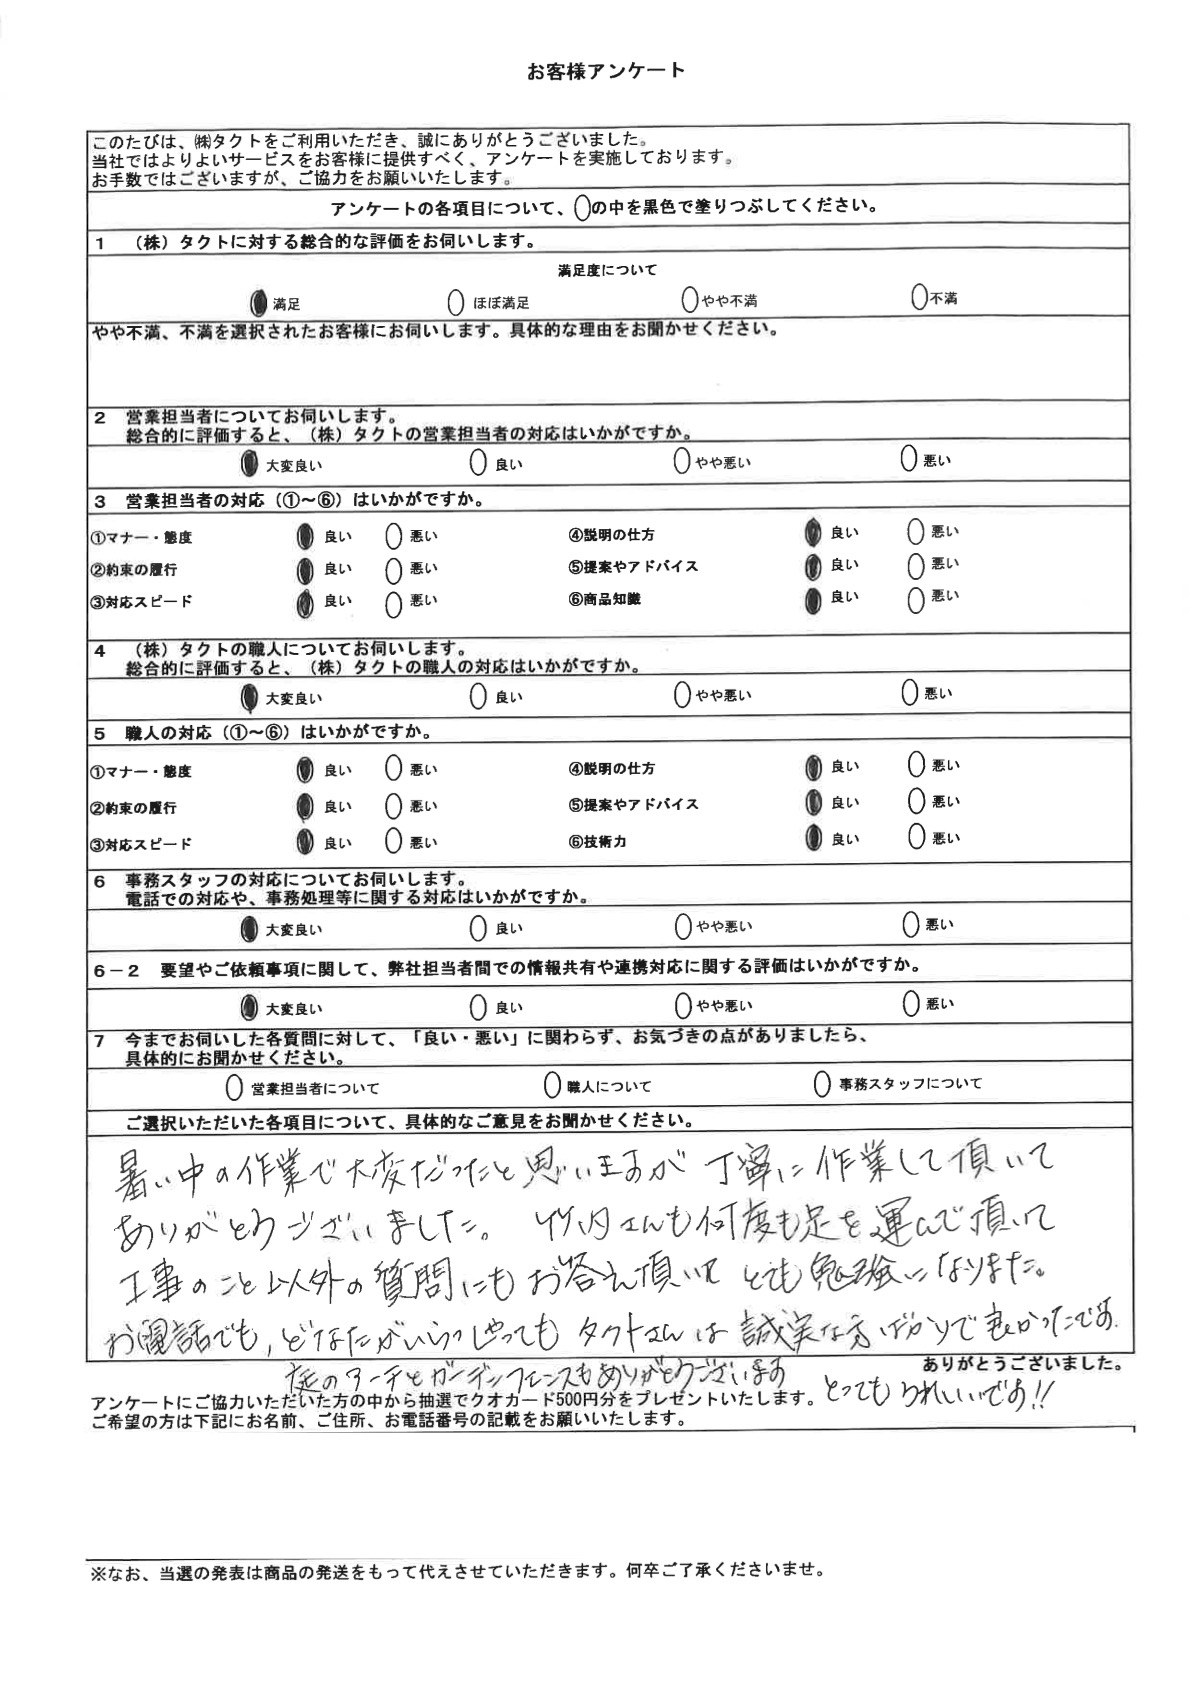 お客様アンケート
このたびは、㈱タクトをご利用いただき、誠にありがとうございました。
当社ではよりよいサービスをお客様に提供すべく、アンケートを実施しております。
お手数ではございますが、ご協力をお願いいたします。
アンケートの各項目について、○の中を黒色で塗りつぶしてください。
1 （株）タクトに対する総合的な評価をお伺いします。
満足度について
満足 ほぼ満足 やや不満 不満
やや不満、不満を選択されたお客様にお伺いします。具体的な理由をお聞かせください。
2 営業担当者についてお伺いします。
総合的に評価すると、（株）タクトの営業担当者の対応はいかがですか。
大変良い 良い やや悪い 悪い
3 営業担当者の対応（①～⑥）はいかがですか。
①マナー・態度 良い 悪い ④説明の仕方 良い 悪い
②約束の履行 良い 悪い ⑤提案やアドバイス 良い 悪い
③対応スピード 良い 悪い ⑥商品知識 良い 悪い
4 （株）タクトの職人についてお伺いします。
総合的に評価すると、（株）タクトの職人の対応はいかがですか。
大変良い 良い やや悪い 悪い
5 職人の対応（①～⑥）はいかがですか。
①マナー・態度 良い 悪い ④説明の仕方 良い 悪い
②約束の履行 良い 悪い ⑤提案やアドバイス 良い 悪い
③対応スピード 良い 悪い ⑥技術力 良い 悪い
6 事務スタッフの対応についてお伺いします。
電話での対応や、事務処理等に関する対応はいかがですか。
大変良い 良い やや悪い 悪い
6－2 要望やご依頼事項に関して、弊社担当者間での情報共有や連携対応に関する評価はいかがですか。
大変良い 良い やや悪い 悪い
7 今までお伺いした各質問に対して、「良い・悪い」に関わらず、お気づきの点がありましたら、
具体的にお聞かせください。
営業担当者について 職人について 事務スタッフについて
ご選択いただいた各項目について、具体的なご意見をお聞かせください。
暑い中の作業で大変だったと思いますが 丁寧に作業して頂いて
ありがとうございました。 竹内さんも何度も足を運んで頂いて
工事のこと以外の質問にもお答え頂いて とても勉強になりました。
お電話でも、どなたがいらっしゃっても タクトさんは 誠実な方ばかりで良かったです。
ありがとうございました。
庭のアーチとガーデンフェンスもありがとうございます
とってもうれしいです!!
アンケートにご協力いただいた方の中から抽選でクオカード500円分をプレゼントいたします。
ご希望の方は下記にお名前、ご住所、お電話番号の記載をお願いいたします。
※なお、当選の発表は商品の発送をもって代えさせていただきます。何卒ご了承くださいませ。